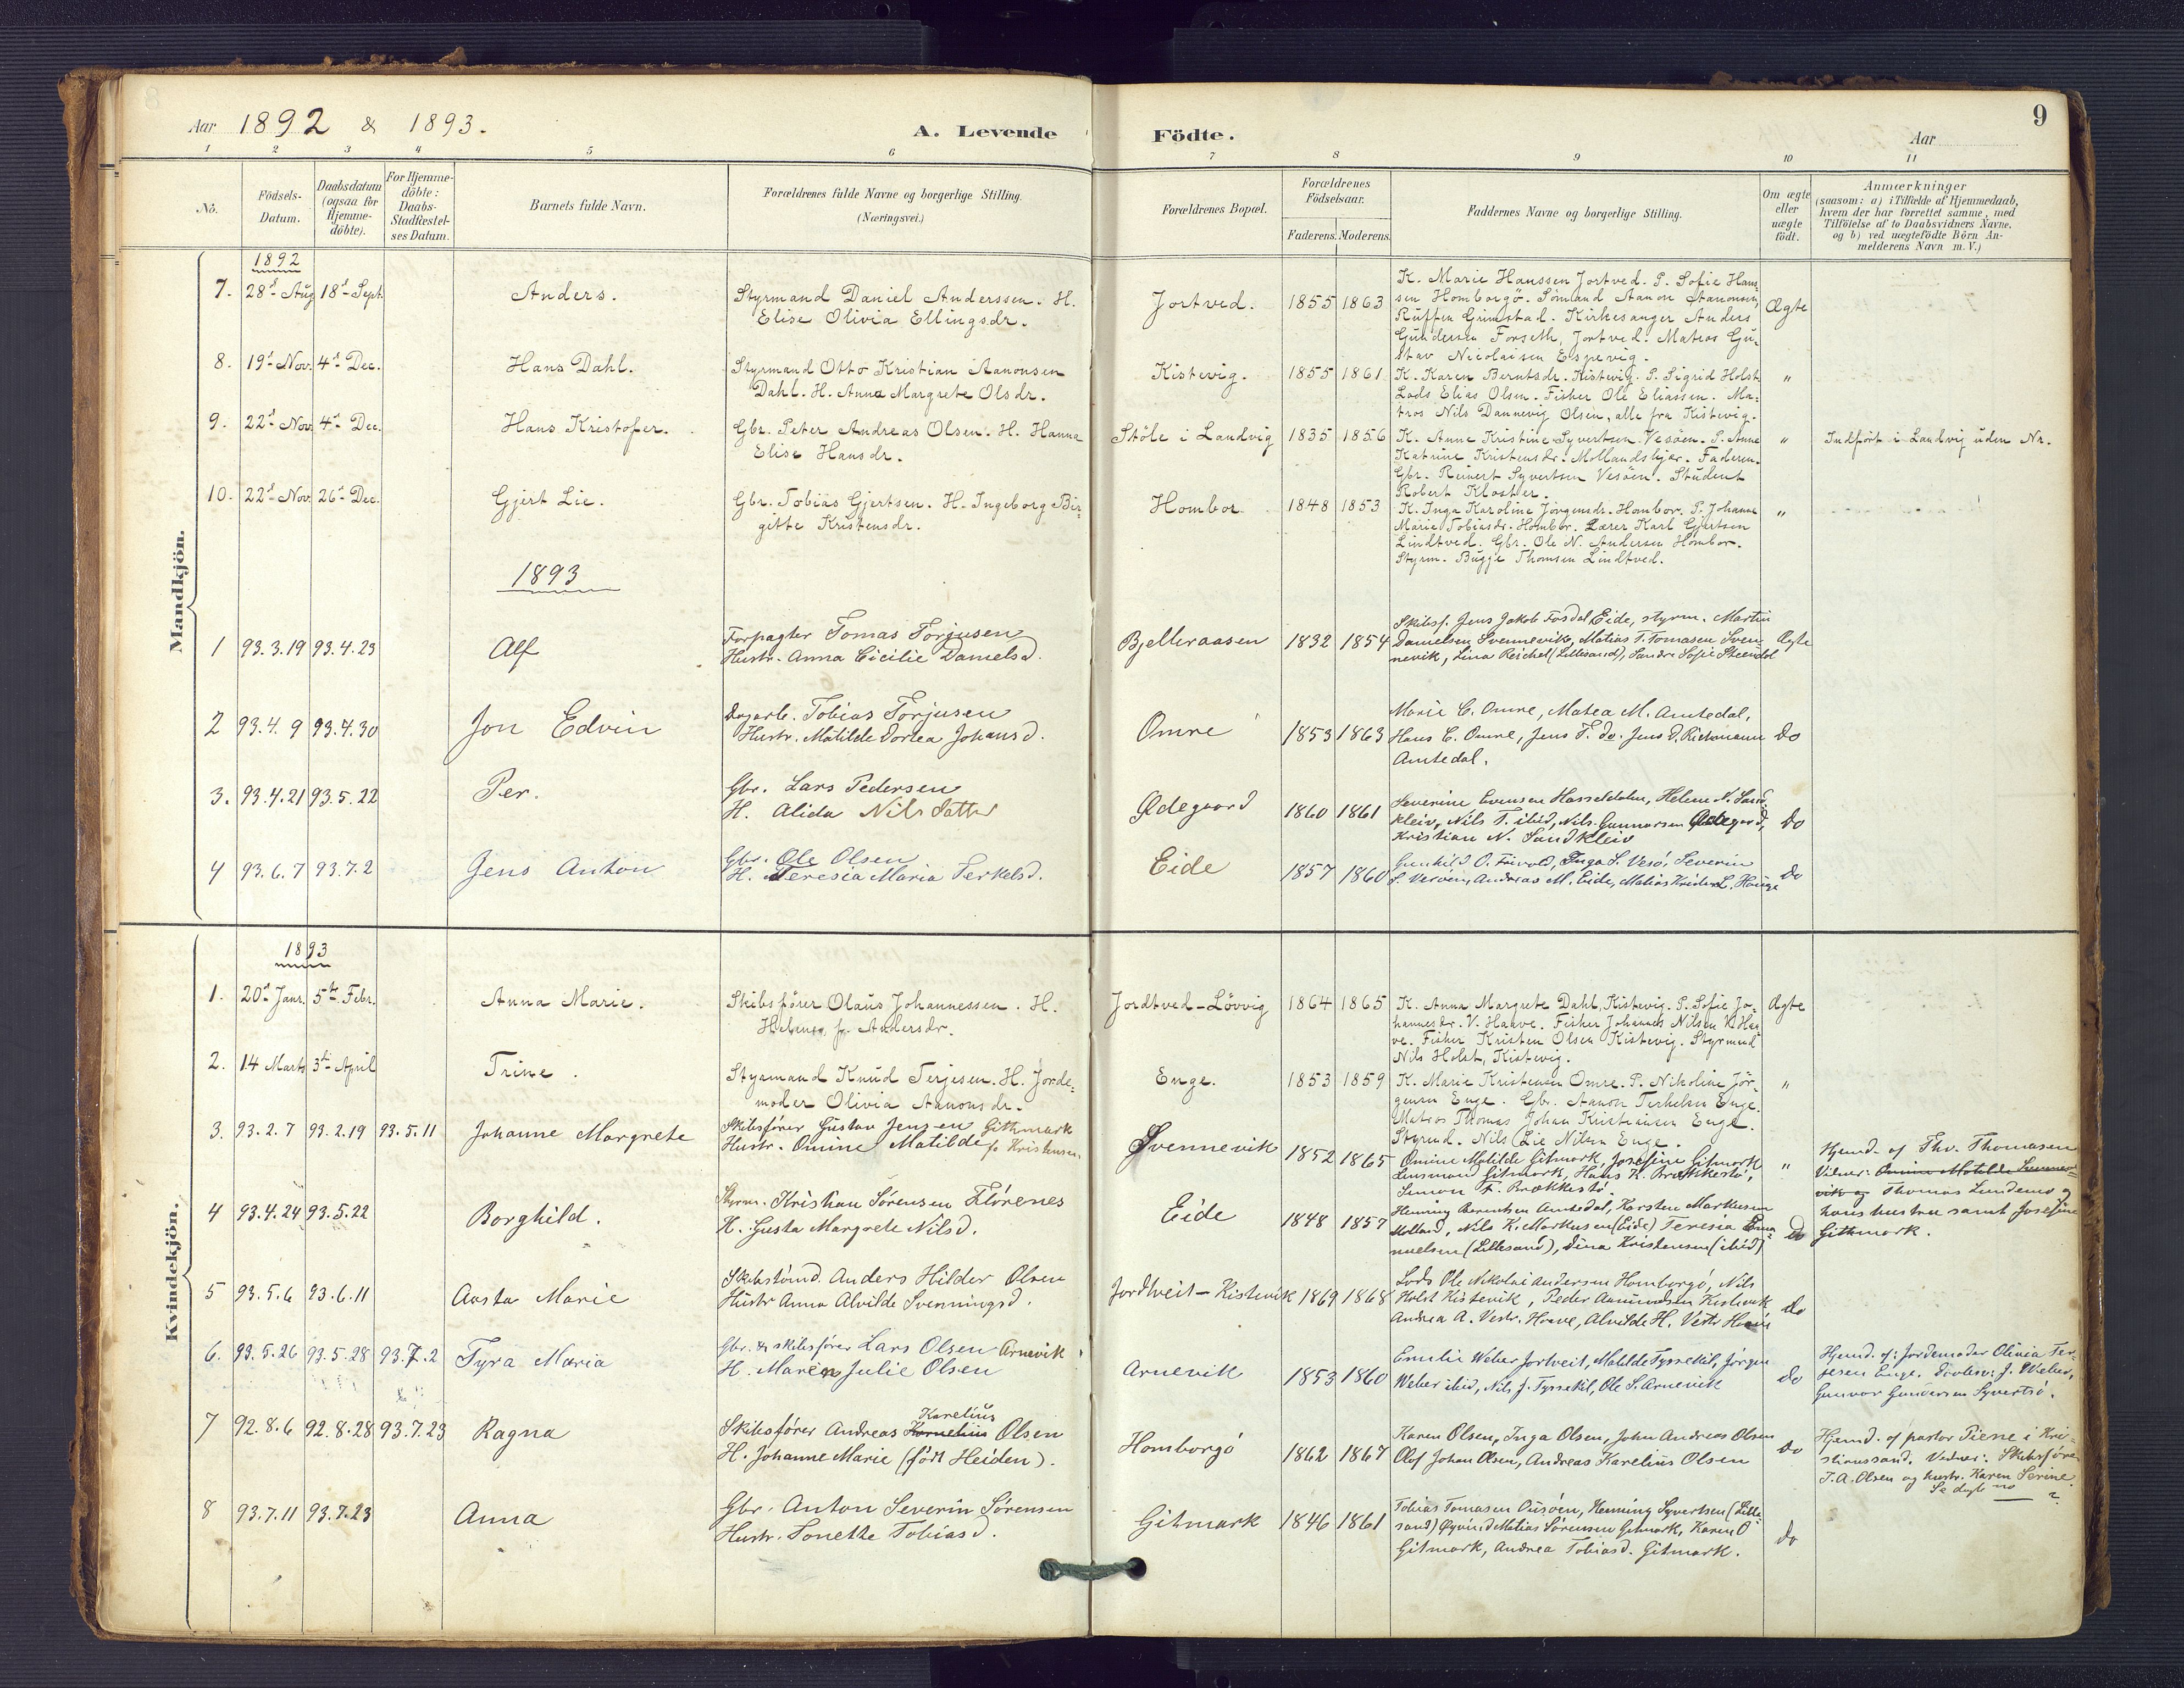 9
Aar 1892 & 1893.
A. Levende Födte.
Aar
1 2 3 4 5 6 7 8 9 10 11
No.
Födsels-
Datum.
Daabsdatum
(ogsaa for
Hjemme-
döbte).
For Hjemme-
döbte:
Daabs-
Stadfæstel-
ses Datum.
Barnets fulde Navn.
Forældrenes fulde Navne og borgerlige Stilling.
(Næringsvei.)
Forældrenes Bopæl.
Forældrenes
Födselsaar.
Faderens. Moderens.
Faddernes Navne og borgerlige Stilling.
Om ægte
eller
uægte
födt.
Anmærkninger
(saasom: a) i Tilfælde af Hjemmedaab,
hvem der har forrettet samme, med
Tilföielse af to Daabsvidners Navne,
og b) ved uægtefödte Börn An-
melderens Navn m. V.)
Mandkjön.
1892
7. 28d Aug 18d Sept
Anders.
Styrmand Daniel Anderssen. H.
Elise Olivia Ellingsdr.
Jortved.
1855 1863
K. Marie Hanssen Jortved. P. Sofie Hans-
sen Homborgö. Sömand Aanon Aanonsen,
Ruffen Grimstad. Kirkesanger Anders
Gundersen Forseth, Jortved. Matros Gu-
stav Nicolaisen Espevig.
Ægte
8. 19d Nov. 4d Dec.
Hans Dahl.
Styrmand Otto Kristian Aanonsen
Dahl. H. Anna Margrete Olsdr.
Kistevig.
1855 1861
K. Karen Berntsdr. Kistevig. P. Sigrid Holst
Lods Elias Olsen. Fisker Ole Eliassen. Ma-
tros Nils Dannevig Olsen, alle fra Kistevig.
"
9. 22d Nov. 4d Dec.
Hans Kristofer.
Gbr. Peter Andreas Olsen. H. Hanna
Elise Hansdr.
Støle i Landvig
1835 1856
K. Anne Kristine Syvertsen Vesöen. P. Anne
Katrine Kristensdr. Mollandskjær. Faderen.
Gbr. Reinert Syvertsen Vesöen. Student
Robert Kloster.
"
Indfört i Landvig uden Nr.
10. 22d Nov. 26d Dec.
Gjert Lie.
Gbr. Tobias Gjertsen. H. Ingeborg Bir-
gitte Kristensdr.
Hombor
1848 1853
K. Inga Karoline Jörgensdr. Hombor. P. Johanne
Marie Tobiasdr. Hombor. Lærer Karl Gjertsen
Lindtved. Gbr. Ole N. Andersen Hombor.
Styrm. Bugge Thomsen Lindtved.
"
1893
1 93.3.19 93.4.23
Alf
Forpagter Tomas Torjusen
Hustr. Anna Cicilie Danielsd.
Bjelleraasen
1832 1854
Skibsf. Jens Jakob Fosdal Eide, styrm. Martin
Danielsen Svennevik, Matias T. Tomasen Sven-
nevik, Lina Reichel (Lillesand), Sandra Sofie Steindal
Ægte
2 93.4.9 93.4.30
Jon Edvin
Dagarb. Tobias Torjusen
Hustr. Matilde Dortea Johansd.
Omre
1853 1863
Marie C. Omre, Matea M. Amtedal,
Hans C. Omre, Jens T. do. Jens D. Rickmann
Amtedal.
do
3. 93.4.21 93.5.22
Per.
Gbr. Lars Pedersen
H. Alida Nilsdatter
Ødegaard
1860 1861
Severine Evensen Hasseldalen, Helene N. Sand-
kleiv, Nils T. ibid, Nils Gunnarsen Ødegard,
Kristian N. Sandkleiv
do
4 93.6.7 93.7.2
Jens Anton
Gbr. Ole Olsen
H. Teresia Maria Terkelsd.
Eide
1857 1860
Gunhild O. Frivold, Inga S. Vesö, Severin
S. Vesöen, Andreas M. Eide, Matias Krister L. Hauge
do
Kvindekjön.
1893
1. 20d Janr. 5te Febr.
Anna Marie.
Skibsförer Olaus Johannessen. H.
Helene Andersdr.
Jordtved-Lövvig
1864 1865
K. Anna Margrete Dahl, Kistevig. P. Sofie Jo-
hannesdr. V. Haave. Fisker Johannes Nilsen V. Haa-
ve. Fisker Kristen Olsen Kistevig. Styrmand
Nils Holst, Kistevig.
Ægte
2. 14 Marts 3die April
Trine.
Styrmand Knud Terjesen. H. Jorde-
moder Olivia Aanonsdr.
Enge.
1853 1859
K. Marie Kristensen Omre. P. Nikoline Jör-
gensen Enge. Gbr. Aanon Terkelsen Enge.
Matros Thomas Johan Kristiansen Enge.
Styrmd. Nils Lie Nilsen Enge.
"
3. 93.2.7 93.2.19 93.5.11
Johanne Margrete
Skibsförer Gustav Jensen Githmark
Hustr. Omine Matilde f. Kristensen
Svennevik
1852 1865
Omine Matilde Gitmark, Josefine Gitmark
Lensmand Gitmark, Hans K. Brækkestö,
Simon F. Brækkestö.
"
Hjemd. af Thv. Thomasen
Vidner: Omine Matilde Svenne-
vik og Thomas Lundemo og
hans hustru samt Josefine
Githmark.
4 93.4.24 93.5.22
Borghild.
Styrm. Kristian Sörensen Flörenes
H. Gusta Margrete Nilsd.
Eide
1848 1857
Henning Berentsen Amtedal, Karsten Markusen
Molland, Nils K. Markusen (Eide) Teresia Ema-
nuelsen (Lillesand), Dina Kristensen (ibid)
do
5 93.5.6 93.6.11
Aasta Marie
Skibstömd. Anders Hilder Olsen
Hustr Anna Alvilde Svenningsd.
Jordtveit-Kistevik
1869 1868
Lods Ole Nikolai Andersen Homborgö, Nils
Holst Kistevik, Peder Aanundsen Kistevik
Andrea A. Vestr. Haave, Alvilde H. Vestr Haave
do
6. 93.5.26 93.5.28 93.7.2
Tyra Maria
Gbr. & skibsförer Lars Olsen Arnevik
H. Maren Julie Olsen
Arnevik
1853 1860
Emilie Weber Jortveit, Matilde Tyssekil, Jörgen
Weber ibid, Nils J. Tyssekil, Ole S. Arnevik
do
Hjemd. af: Jordemoder Olivia Ter-
jesen Enge. Daabsv: J. Weber,
Gunvor Gundersen Syvertsö.
7 92.8.6 92.8.28 93.7.23
Ragna
Karelius
Skibsförer Andreas Kornelius Olsen
H. Johanne Marie (født Heiden).
Homborgö
1862 1867
Karen Olsen, Inga Olsen, John Andreas Olsen
Olof Johan Olsen, Andreas Karelius Olsen
do
Hjemd. af pastor Piene i Kri-
stianssand. Vidner: Skibsförer
T. A. Olsen og hustr. Karen Serine
8 93.7.11 93.7.23
Anna
Gbr. Anton Severin Sörensen
Hustr. Tonette Tobiasd.
Gitmark
1846 1861
Tobias Tomasen Ousöen, Henning Syvertsen (Lille-
sand) Øyvind Matias Sörensen Gitmark, Karen O
Gitmark, Andrea Tobiasd. Gitmark.
do